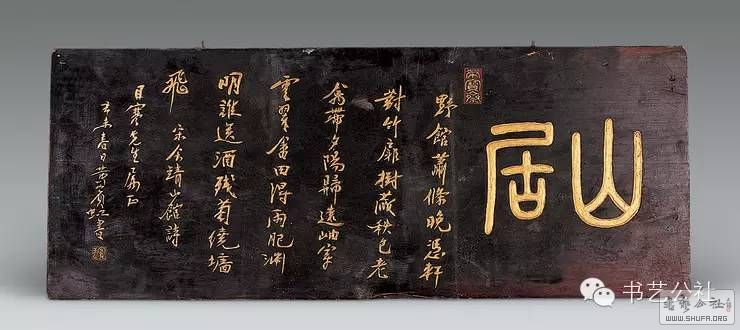 山居
榮寶齋
野館蕭條晚憑軒
對竹扉樹藏秋色老
禽帶夕陽歸遠岫穿
雲翠畬田得雨肥淵
明誰送酒殘菊繞墻
飛 宋余靖山館詩
目寒先生屬正
未春日黄賓虹書
书艺公社
WWW.SHUFA.ORG